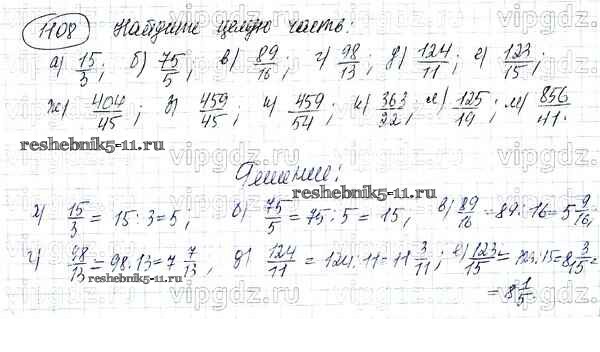 1108 Найдите целую часть:
а) 15/3; б) 75/5; в) 89/16; г) 98/13; д) 124/11; е) 123/15;
ж) 404/45; з) 459/45; и) 459/54; к) 363/22; л) 125/19; м) 856/11.
reshebnik5-11.ru
Решение:
reshebnik5-11.ru
а) 15/3 = 15:3=5; б) 75/5 = 75:5 = 15, в) 89/16 = 89:16=5 9/16,
г) 98/13 = 98:13=7 7/13, д) 124/11 = 124:11=11 3/11; е) 123/15 = 123:15=8 3/15=
reshebnik5-11.ru
= 8 1/5.
vipgdz.ru